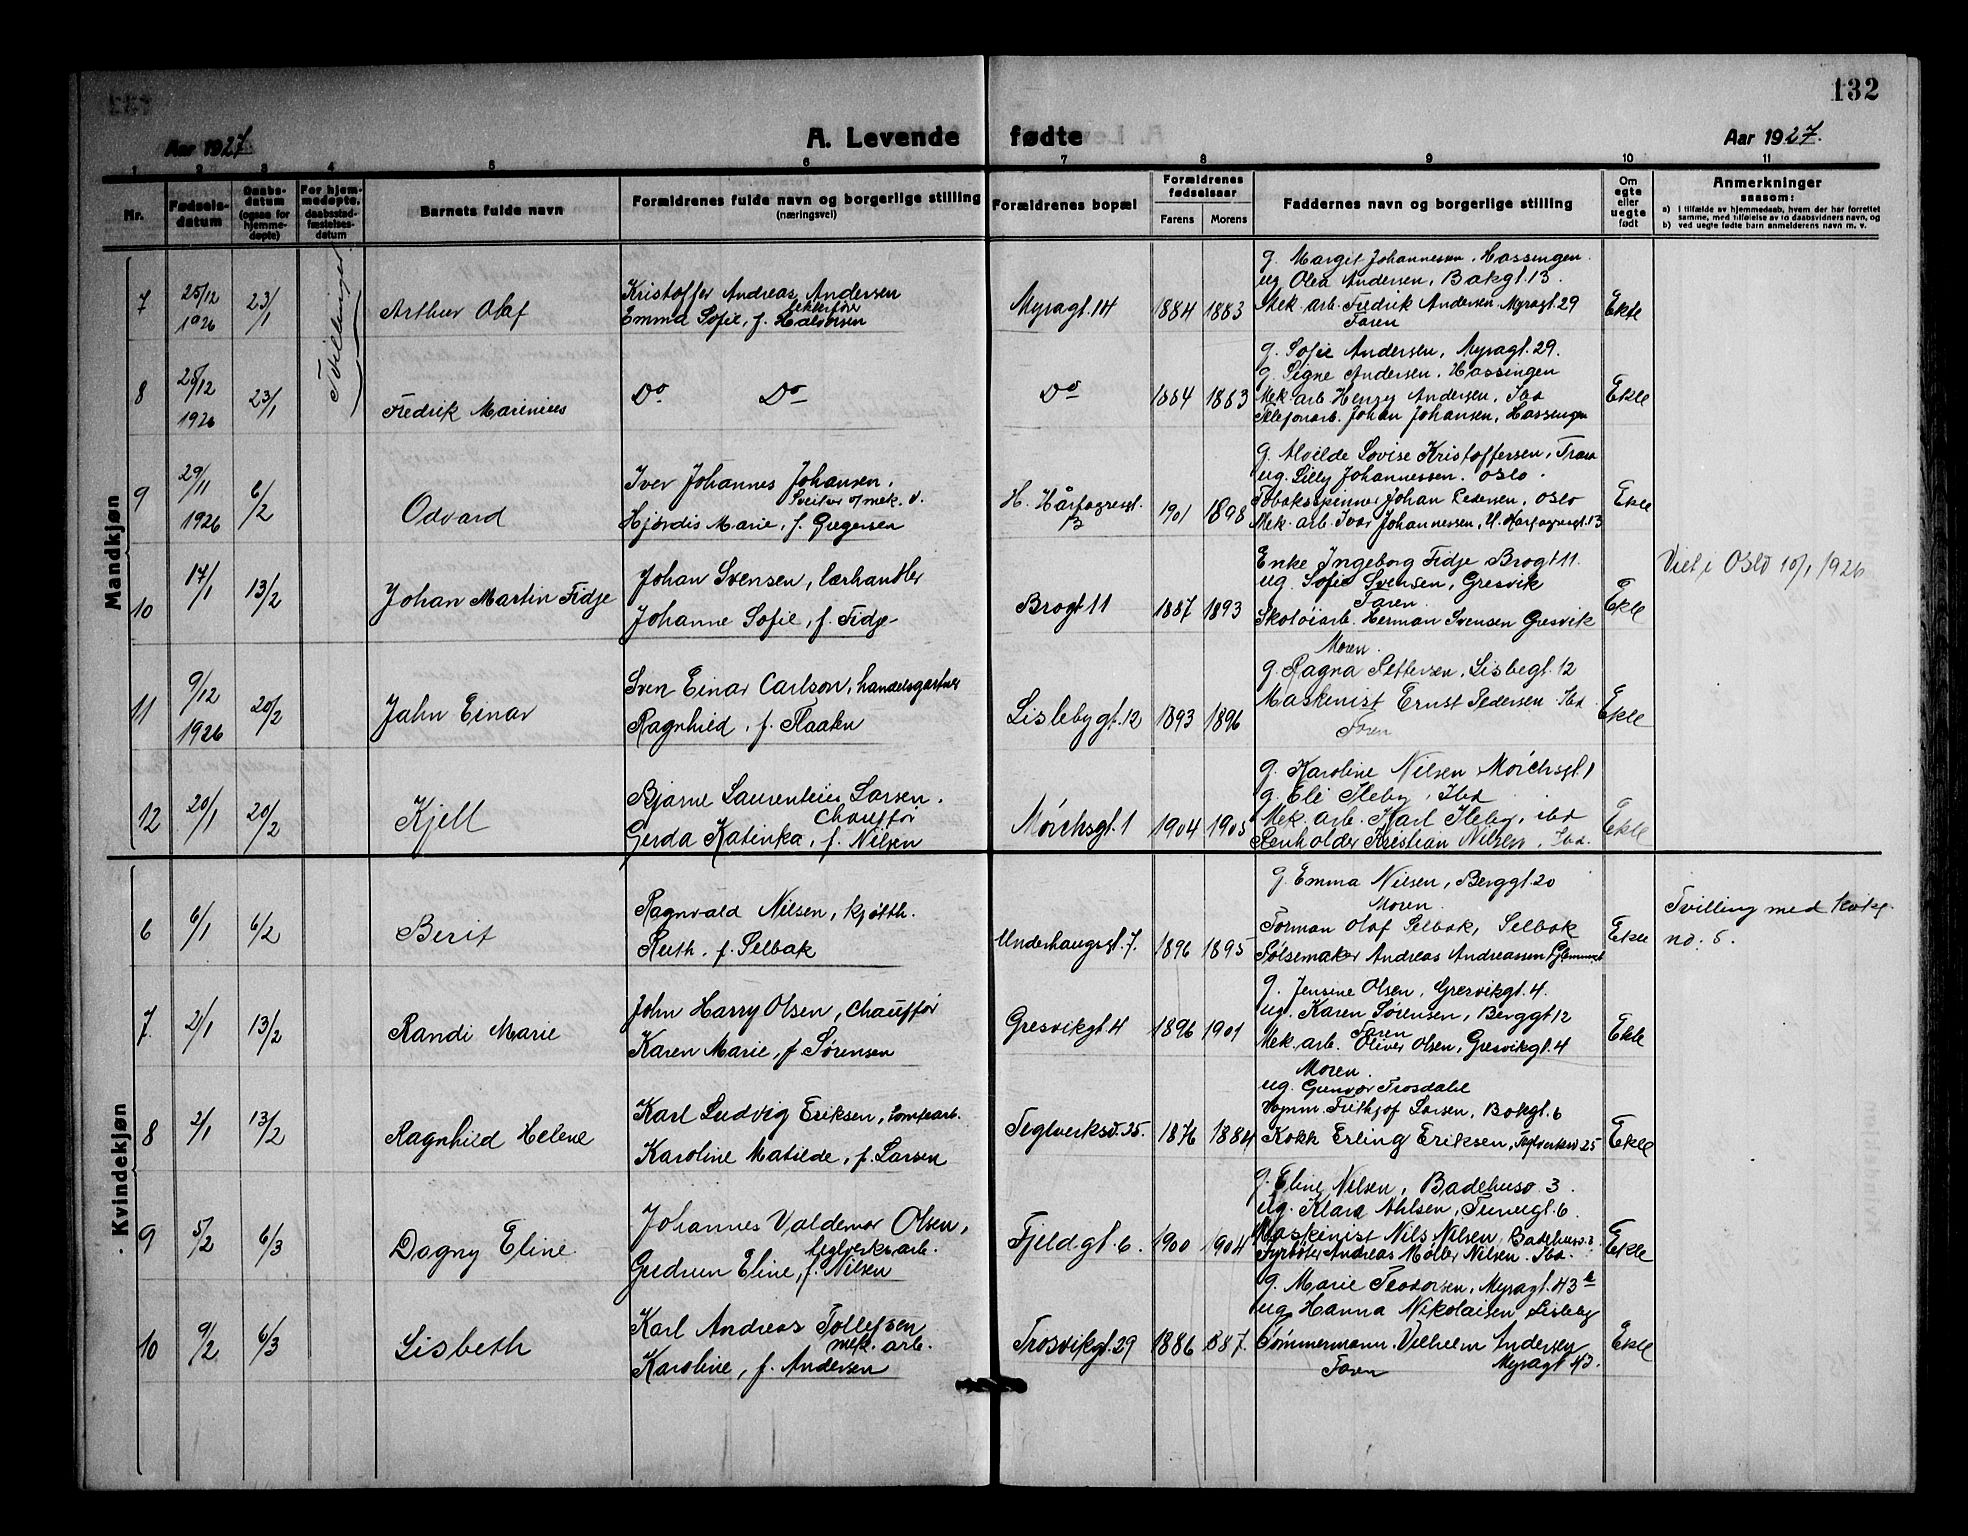 132
Aar 1927.
A. Levende fødte
Aar 1927.
1 2 3 4 5 6 7 8 9 10 11
Nr.
Fødsels-
datum
Daabs-
datum
(ogsaa for
hjemme-
døpte)
For hjem-
medøpte,
daabsstad-
fæstelses-
datum
Barnets fulde navn
Forældrenes fulde navn og borgerlige stilling
(næringsvei)
Forældrenes bopæl
Forældrenes
fødselsaar
Farens Morens
Faddernes navn og borgerlige stilling
Om
egte
eller
uegte
født
Anmerkninger
saasom:
a) i tilfælde av hjemmedaab, hvem der har forrettet
samme, med tilføielse av to daabsvidners navn, og
b) ved uegte fødte barn anmelderens navn m. v.
Mandkjøn
Tvillinger
7
25/12
1926
23/1
Arthur Olaf
Kristoffer Andreas Andersen
Emma Sofie, f. Halvorsen
Myragt. 14
1884 1883
g. Marget Johannessen, Hassengen.
ug. Olea Andersen, Bakgt. 13.
Mek. arb. Fredrik Andersen Myragt. 29
Faren
Ekte
8
25/12
1926
23/1
Fredrik Marinius
Do Do
Do
1884 1883
g. Sofie Andersen, Myragt. 29.
g. Signe Andersen, Hassingen
Mek. arb. Henry Andersen, Ibd
Telefonarb. Johan Johansen, Hassengen
Ekte
9
29/11
1926
6/2
Odvard
Iver Johannes Johansen.
Hjördis Marie, f. Gregersen
H. Hårfagresgt.
13
1901 1898
g. Alvilde Lovise Kristoffersen, Trara
ug. Lilly Johannessen. Oslo.
Tobaksspinner Johan Pedersen, Oslo
Mek. arb. Ivar Johannessen, H. Harfagresgt. 13
Ekte
10
17/1
13/2
Johan Martin Fidje
Johan Svensen, lærhandler
Johanne Sofie, f. Fidje
Brogt 11
1887 1893
Enke Ingeborg Fidje Brogt 11.
ug. Sofie Svensen, Gresvik
Faren.
Skotöiarb. Herman Svensen Gresvik
Ekte
Viet i Oslo 10/1 1926
11
9/12
1926
20/2
Jahn Einar
Sven Einar Carlson, handelsgartner
Ragnhild, f. Flaaten
Lislebygt. 12
1893 1896
Moren.
g. Ragna Pettersen, Lisbegt. 12
Maskinist Ernst Pedersen Ibd
Faren
Ekte
12
20/1
20/2
Kjell
Bjarne Laurentius Larsen.
Chauffør
Gerda Katinka, f. Nilsen
Mørchsgt. 1
1904 1905
g. Karoline Nilsen Mörchsgt. 1
g. Eli Ileby, Ibd
Mek. arb. Karl Ileby, ibd
Renholder Kristian Nilsen, Ibd.
Ekte
Kvindekjøn
6
6/1
6/2
Berit
Ragnvald Nilsen, kjötth.
Ruth. f. Selbak
Underhaugsgt. 7.
1896 1895
g. Emma Nilsen, Berggt. 20
Moren.
Forman Olaf Selbak, Selbak
Pølsemaker Andreas Andreassen
Ekte
Tvilling med kvkj.
no: 5.
7.
2/1
13/2
Randi Marie
John Harry Olsen, Chauffør
Karen Marie, f. Sørensen
Gresvikgt. 4
1896 1901
g. Jensine Olsen, Gresvikgt. 4.
ug. Karen Sørensen, Berggt 12
Faren
Mek. arb. Oliver Olsen, Gresvikgt. 4
Ekte
8
2/1
13/2
Ragnhild Helene
Karl Ludvig Eriksen, tomtearb.
Karoline Matilde, f. Larsen
Teglverksv. 25.
1876 1884
Moren.
ug. Gunvor Trosdahl
Frithjof Larsen, Bakgt. 6
Kokk Erling Eriksen, Teglverksv 25
Ekte
9
5/2
6/3
Dagny Eline
Johannes Valdemar Olsen,
teglverksarb.
Gudrun Eline, f. Nilsen
Fjeldgt. 6.
1900 1904
g. Eline Nilsen, Badehusv. 3.
ug. Klara Ahlsen, Furugt. 6.
Maskinist Nils Nilsen, Badehusv. 3
Fyrbøter Andreas Møller Nilsen. Ibd.
Ekte
10
9/2
6/3
Lisbeth
Karl Andreas Tollefsen
mek. arb.
Karoline, f. Andersen
Trosvikgt. 29
1886 1887.
g. Marie Teodorsen, Myragt. 43 b
ug Hanna Nikolaisen Lisleby
Tömmermann. Vilhelm Andersen
Faren Myragt 43.
Ekte